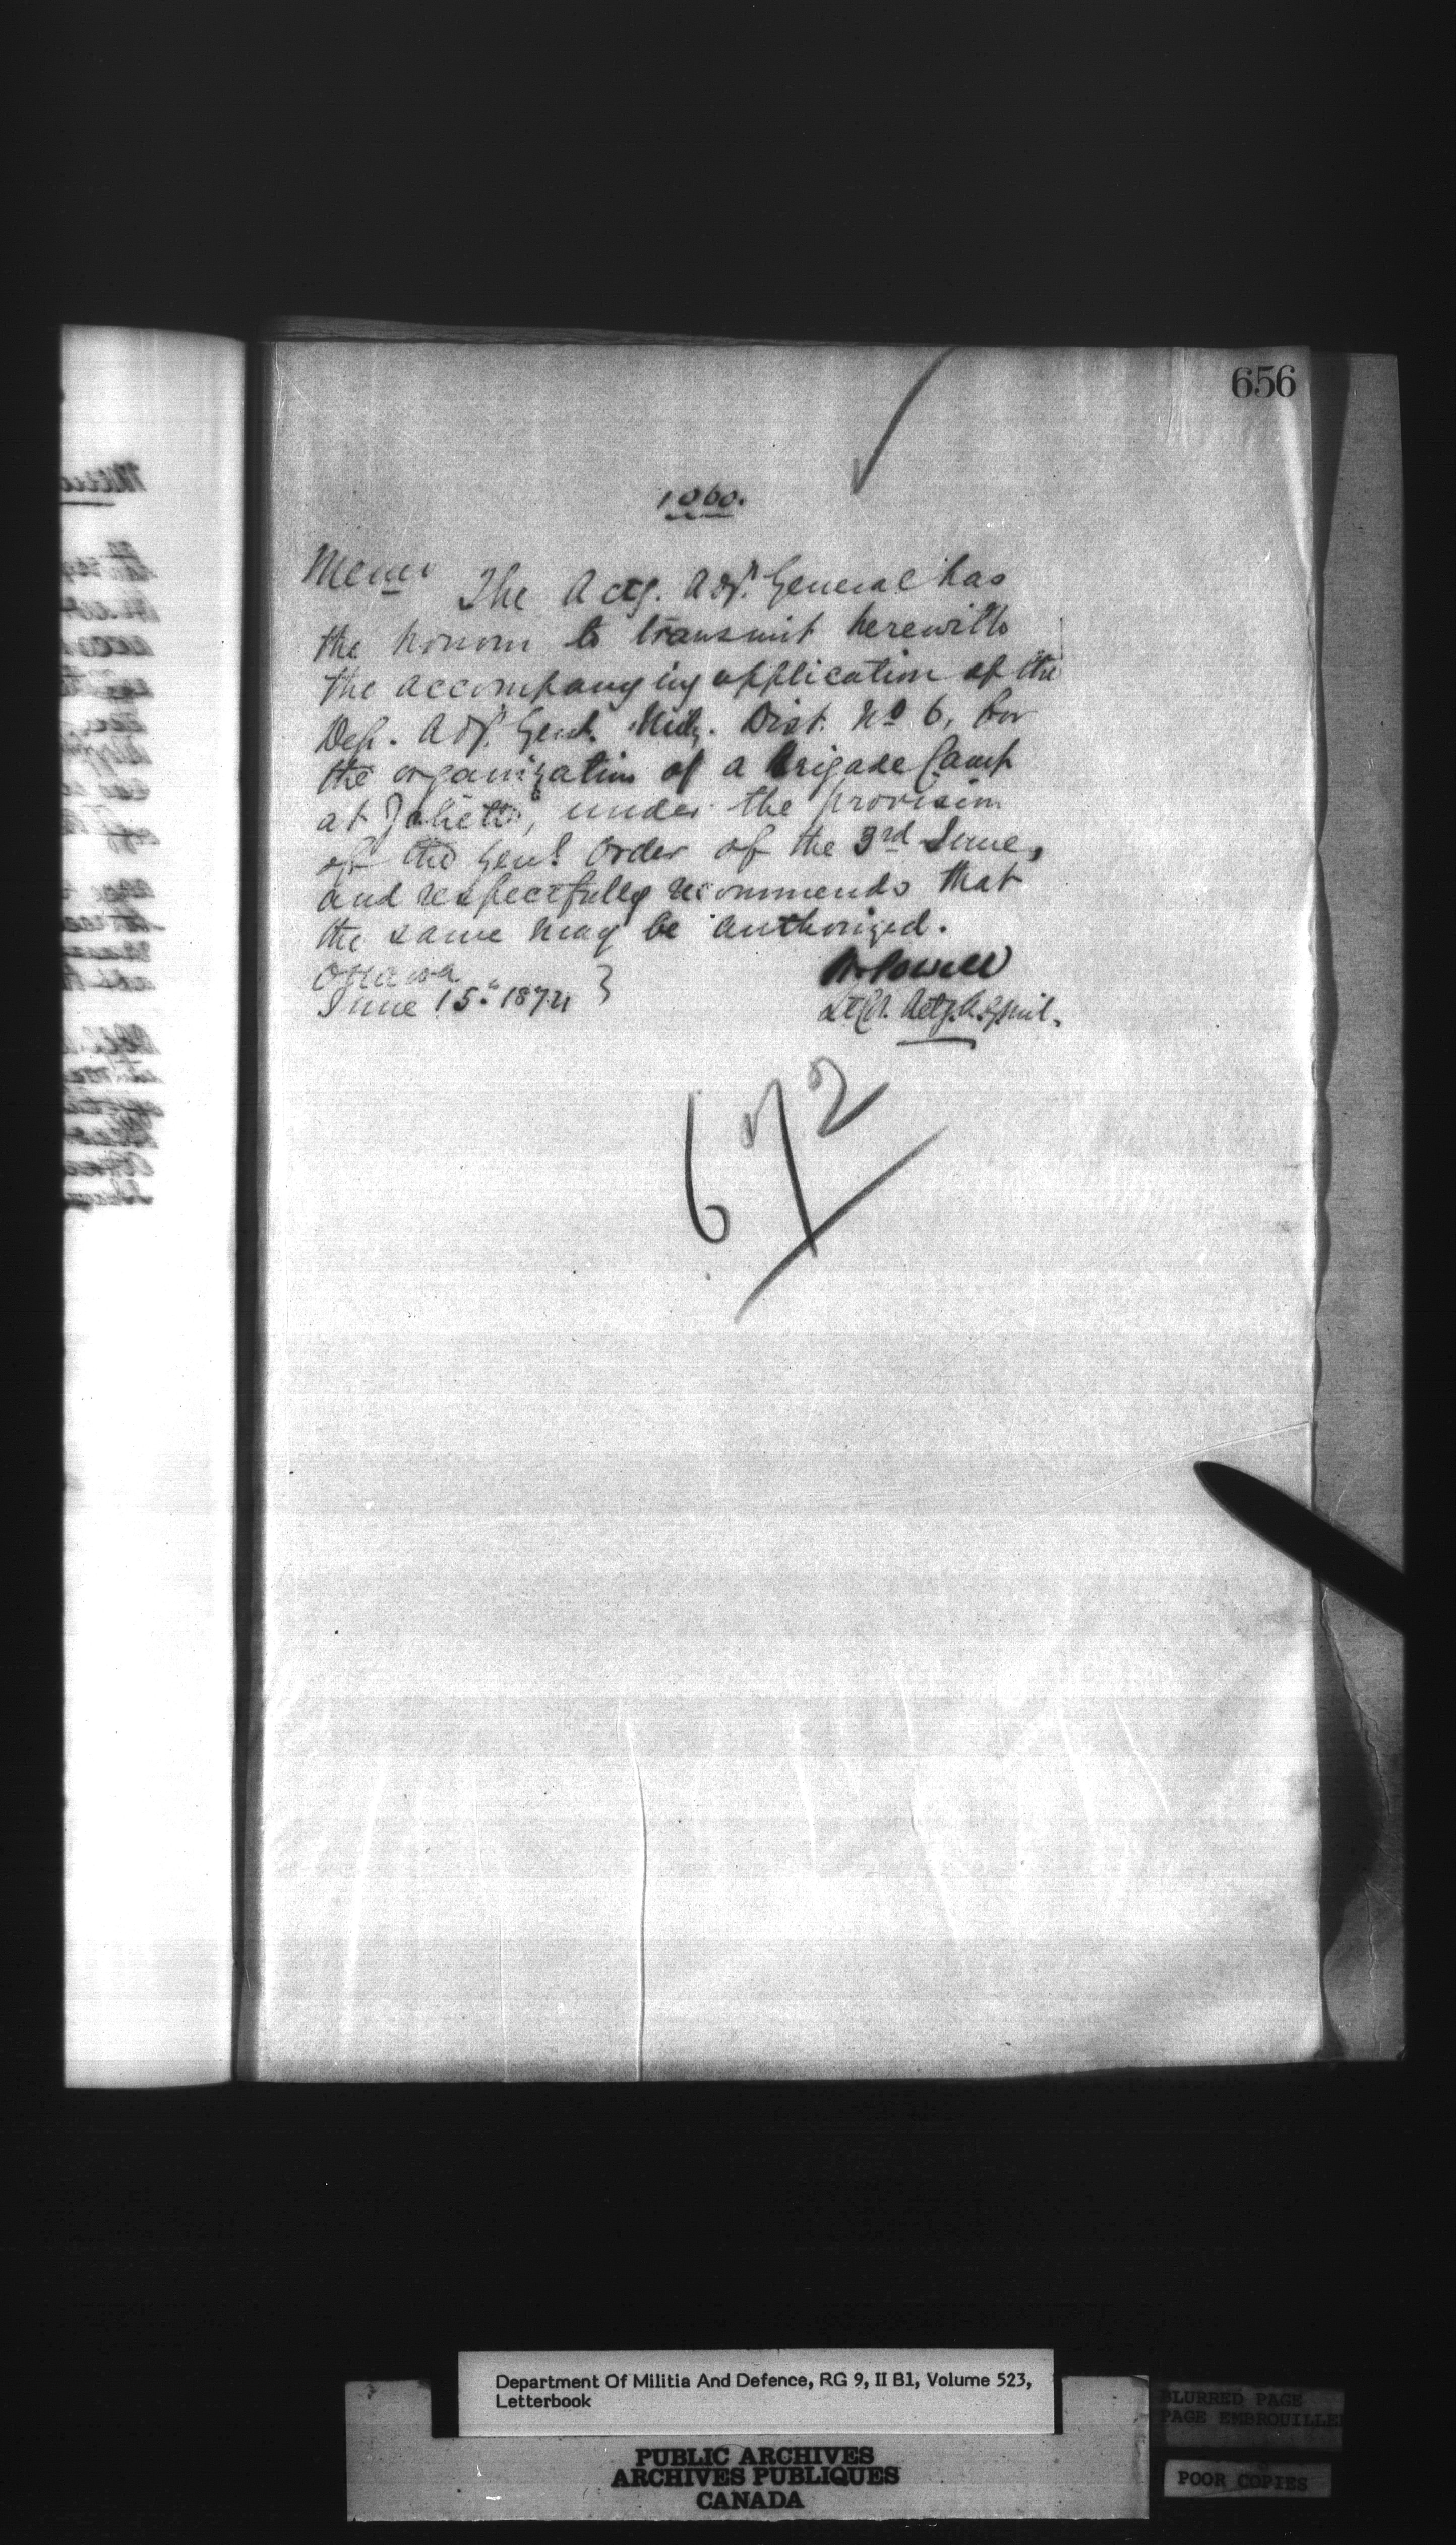 656
1060.
Memo The Actg. Adj. General has
the honour to transmit herewith
the accompanying application of the
Dep. Adj. Genl. Mily. Dist. No 6, for
the organization of a Brigade Camp
at Joliette, under the provision
of the Genl Order of the 3rd June,
and respectfully recommends that
the same may be authorized.
Ottawa
June 15th 1874
W Powell
Lt Col. Actg. A. G. Mil.
672
Department Of Militia And Defence, RG 9, II B1, Volume 523,
Letterbook
PUBLIC ARCHIVES
ARCHIVES PUBLIQUES
CANADA
BLURRED PAGE
PAGE EMBROUILLEE
POOR COPIES